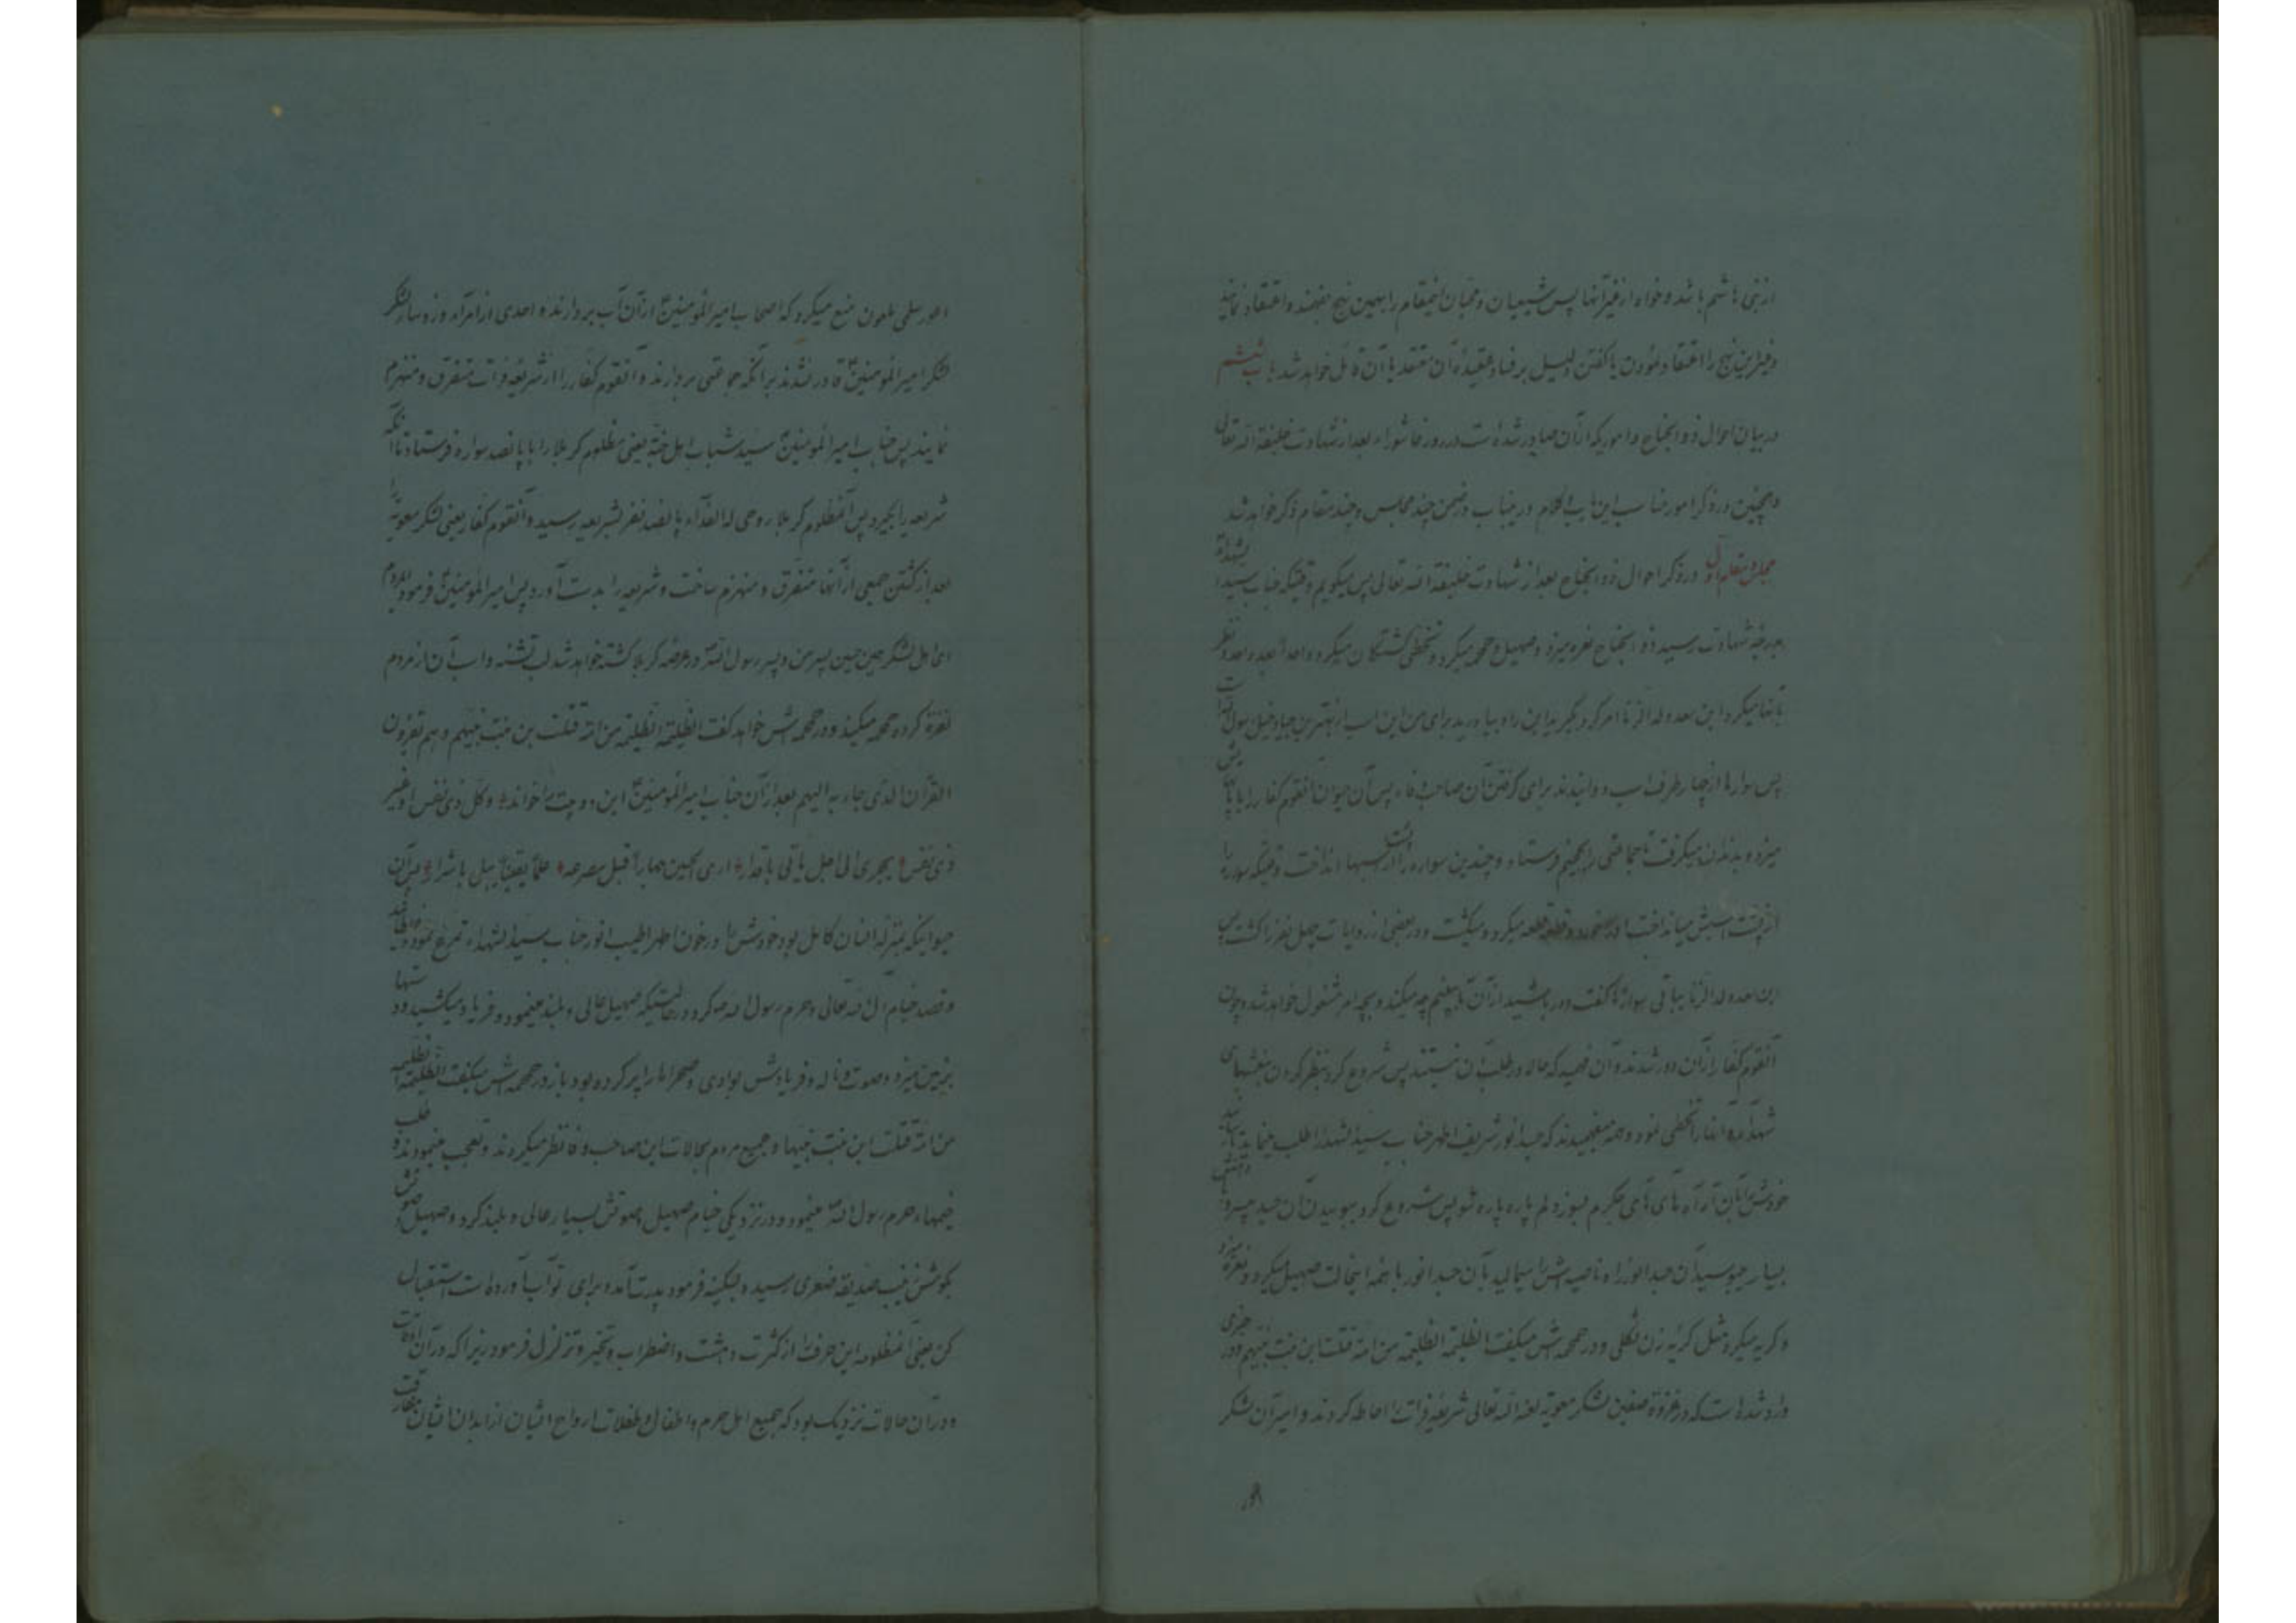 از بنی هاشم باشد و خواه از غیر آنها پس شیعیان و محبان اینمقام را بهمین نهج بفهمند و اعتقاد نمایند
و غیر این نهج را اعتقاد نمودن یا گفتن دلیل بر فساد عقیدهٔ آن معتقد یا آن قائل خواهد شد باب ششم
در بیان احوال ذو الجناح و اموریکه از آن صادر شده است در روز عاشوراء بعد از شهادت خلیفة الله تعالی
و همچنین در ذکر امور مناسب این باب و کلام در ضمن چند مجالس و چند مقام ذکر خواهد شد
مجلس و مقام اول در ذکر احوال ذو الجناح بعد از شهادت خلیفة الله تعالی پس میگویم وقتیکه جناب سید الشهداء
بدرجهٔ شهادت رسید ذو الجناح نعره میزد و صهیل و حمحمه میکرد و تخطی کشتگان میکرد و واحداً بعد واحد نظر
بآنها میکرد ابن سعد ولد الزنا امر کرد بگیرید این را و بیاورید برای من این اسب از بهترین جیاد خیل رسول الله است
پس سوارها از چهار طرف اسب دوانیدند برای گرفتن آن صاحب وفاء پس آن حیوان آنقوم کفار را با پاهایش
میزد و بدندان میگرفت تا جماعتی را بجهنم فرستاد و چندین سواره را از اسبها انداخت وقتیکه سوار را
از پشت اسبش میانداخت میکرد و میکشت و در بعضی از روایات چهل نفر را کشت پس
ابن سعد ولد الزنا بباقی سوارها گفت دور باشید از آن تا ببینیم چه میکند و بچه امر مشغول خواهد شد و چون
آنقوم کفار از آن دور شدند و آن فهمید که حالا در طلب آن نیستند پس شروع کرد بنظر کردن بنعشهای
شهداء و آنها را تخطی نمود و همه میفهمیدند که جسد انور شریف اطهر جناب سید الشهداء را طلب مینماید
خودش را بآن آه آه ای جگرم بسوز و دلم پاره پاره شو پس شروع کرد ببوییدن آن جسد
بسیار میبوسید آن جسد انور را و ناصیه اش را میمالید بآن جسد انور با همه اینحالت صهیل میکرد و نعره میزد
و گریه میکرد مثل گریه زن ثکلی و در حمحمه اش میگفت الظلیمة الظلیمة من امة قتلت ابن بنت نبیهم و در خبری
وارد شده است که در غزوه صفین لشکر معویه لعنه الله تعالی شریعه فرات را احاطه کردند و امیر آن لشکر
اعور سلمی ملعون منع میکرد که اصحاب امیر المؤمنین از آن آب بردارند و احدی از امراء و رؤساء لشکر
لشکر امیر المؤمنین قادر نشدند برآنکه جماعتی بردارند و آنقوم کفار را از شریعه فرات متفرق و منهزم
نمایند پس جناب امیر المؤمنین سید شباب اهل جنّة یعنی مظلوم کربلا را با پانصد سواره فرستاد تا آنکه
شریعه را بگیرد پس آنمظلوم کربلا روحی له الفداء با پانصد نفر بشریعه رسید و آنقوم کفار یعنی لشکر معویه را
بعد از کشتن جمعی از آنها متفرق و منهزم ساخت و شریعه را بدست آورد پس امیر المؤمنین فرمود ایمردم
ای اهل لشکر من حسین پسر من و پسر رسول الله در عرصه کربلا کشته خواهد شد لب تشنه و اسب آن از مردم
نفره کرده حمحمه میکند و در حمحمه اش خواهد گفت الظلیمة الظلیمة من امة قتلت بن بنت نبیهم و هم یقرؤن
القرآن الذی جاء به الیهم بعد از آن جناب امیر المؤمنین این دو بیت را خواند و کل ذی نفس او غیر
ذی نفس یجری الی اجل یاتی باقدار اری الحسین جهاراً قبل مصرعه علماً یقیناً پس آن
حیوانیکه بمنزله انسان کامل بود خودش را در خون اطهر اطیب انور جناب سید الشهداء تمرغ نمود
و قصد خیام آل الله تعالی و حرم رسول الله ص کرد در حالتیکه صهیل عالی و بلند مینمود و فریاد میکشید و دستها
بزمین میزد و صوت و ناله و فریادش بوادی و صحراها را پر کرده بود باز در حمحمه اش میگفت الظلیمة الظلیمة
من امة قتلت ابن بنت نبیها و جمیع مردم بحالات این صاحب وفا نظر میکردند و تعجب مینمودند و طلب
خیمهاء حرم رسول الله مینمود و در نزدیکی خیام صهیل و صوتش بسیار عالی و بلند کرد و صهیل و صوتش
بگوش زینب صدیقه صغری رسید و بسکینه فرمود پدرت آمد و برای تو آب آورده است استقبال
کن یعنی آنمظلومه این حرف را از کثرت دهشت و اضطراب و تحیر و تزلزل فرمود زیرا که در آن اوقات
و در آن حالات نزدیک بود که جمیع اهل حرم و اطفال و طفلات ارواح ایشان از ابدان ایشان مفارقت
اعور